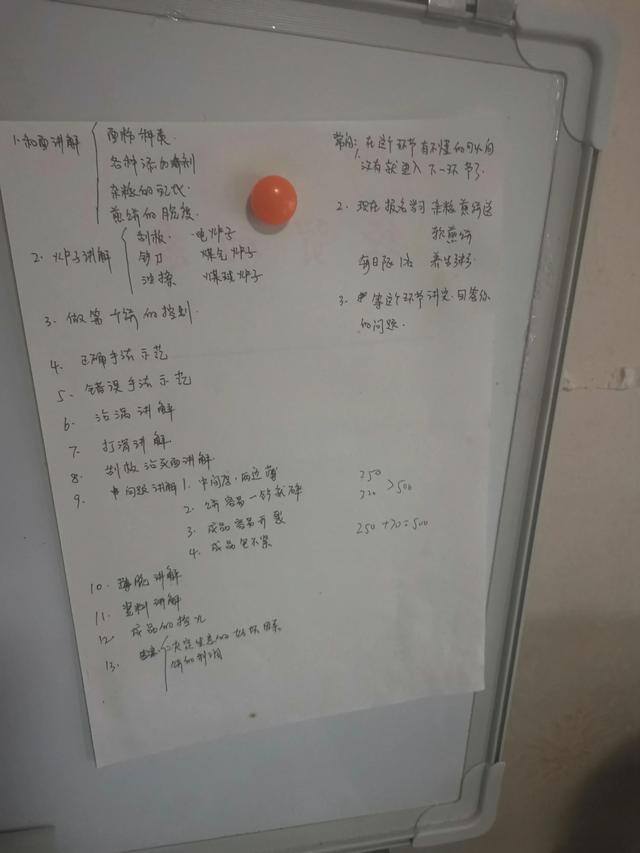 1. 和面讲解
面粉种类.
各种添加剂
杂粮的配伐
煎饼的脆度
2. 炉子讲解
刮板. 电炉子
铲刀 煤气炉子
油擦 煤球炉子
3. 做第一个饼的控制.
4. 正确手法示范
5. 错误手法示范
6. 沾锅讲解
7. 打滑讲解
8. 刮板沾灰面讲解
9. 问题讲解 1. 中间厚, 两边薄
2. 饼容易一铲就碎
3. 成品容易开裂
4. 成品包不紧
10. 薄脆讲解
11. 酱料讲解
12. 成品的
13. 决定生意的好坏因素
常问: 1. 在这个环节有不懂的可以问
没有就进入下一环节了.
2. 现在报名学习杂粮煎饼送
软煎饼
每日限1名 养生粥
3. 等这个环节讲完, 回答你
的问题.
250
320 >500
250+70=500